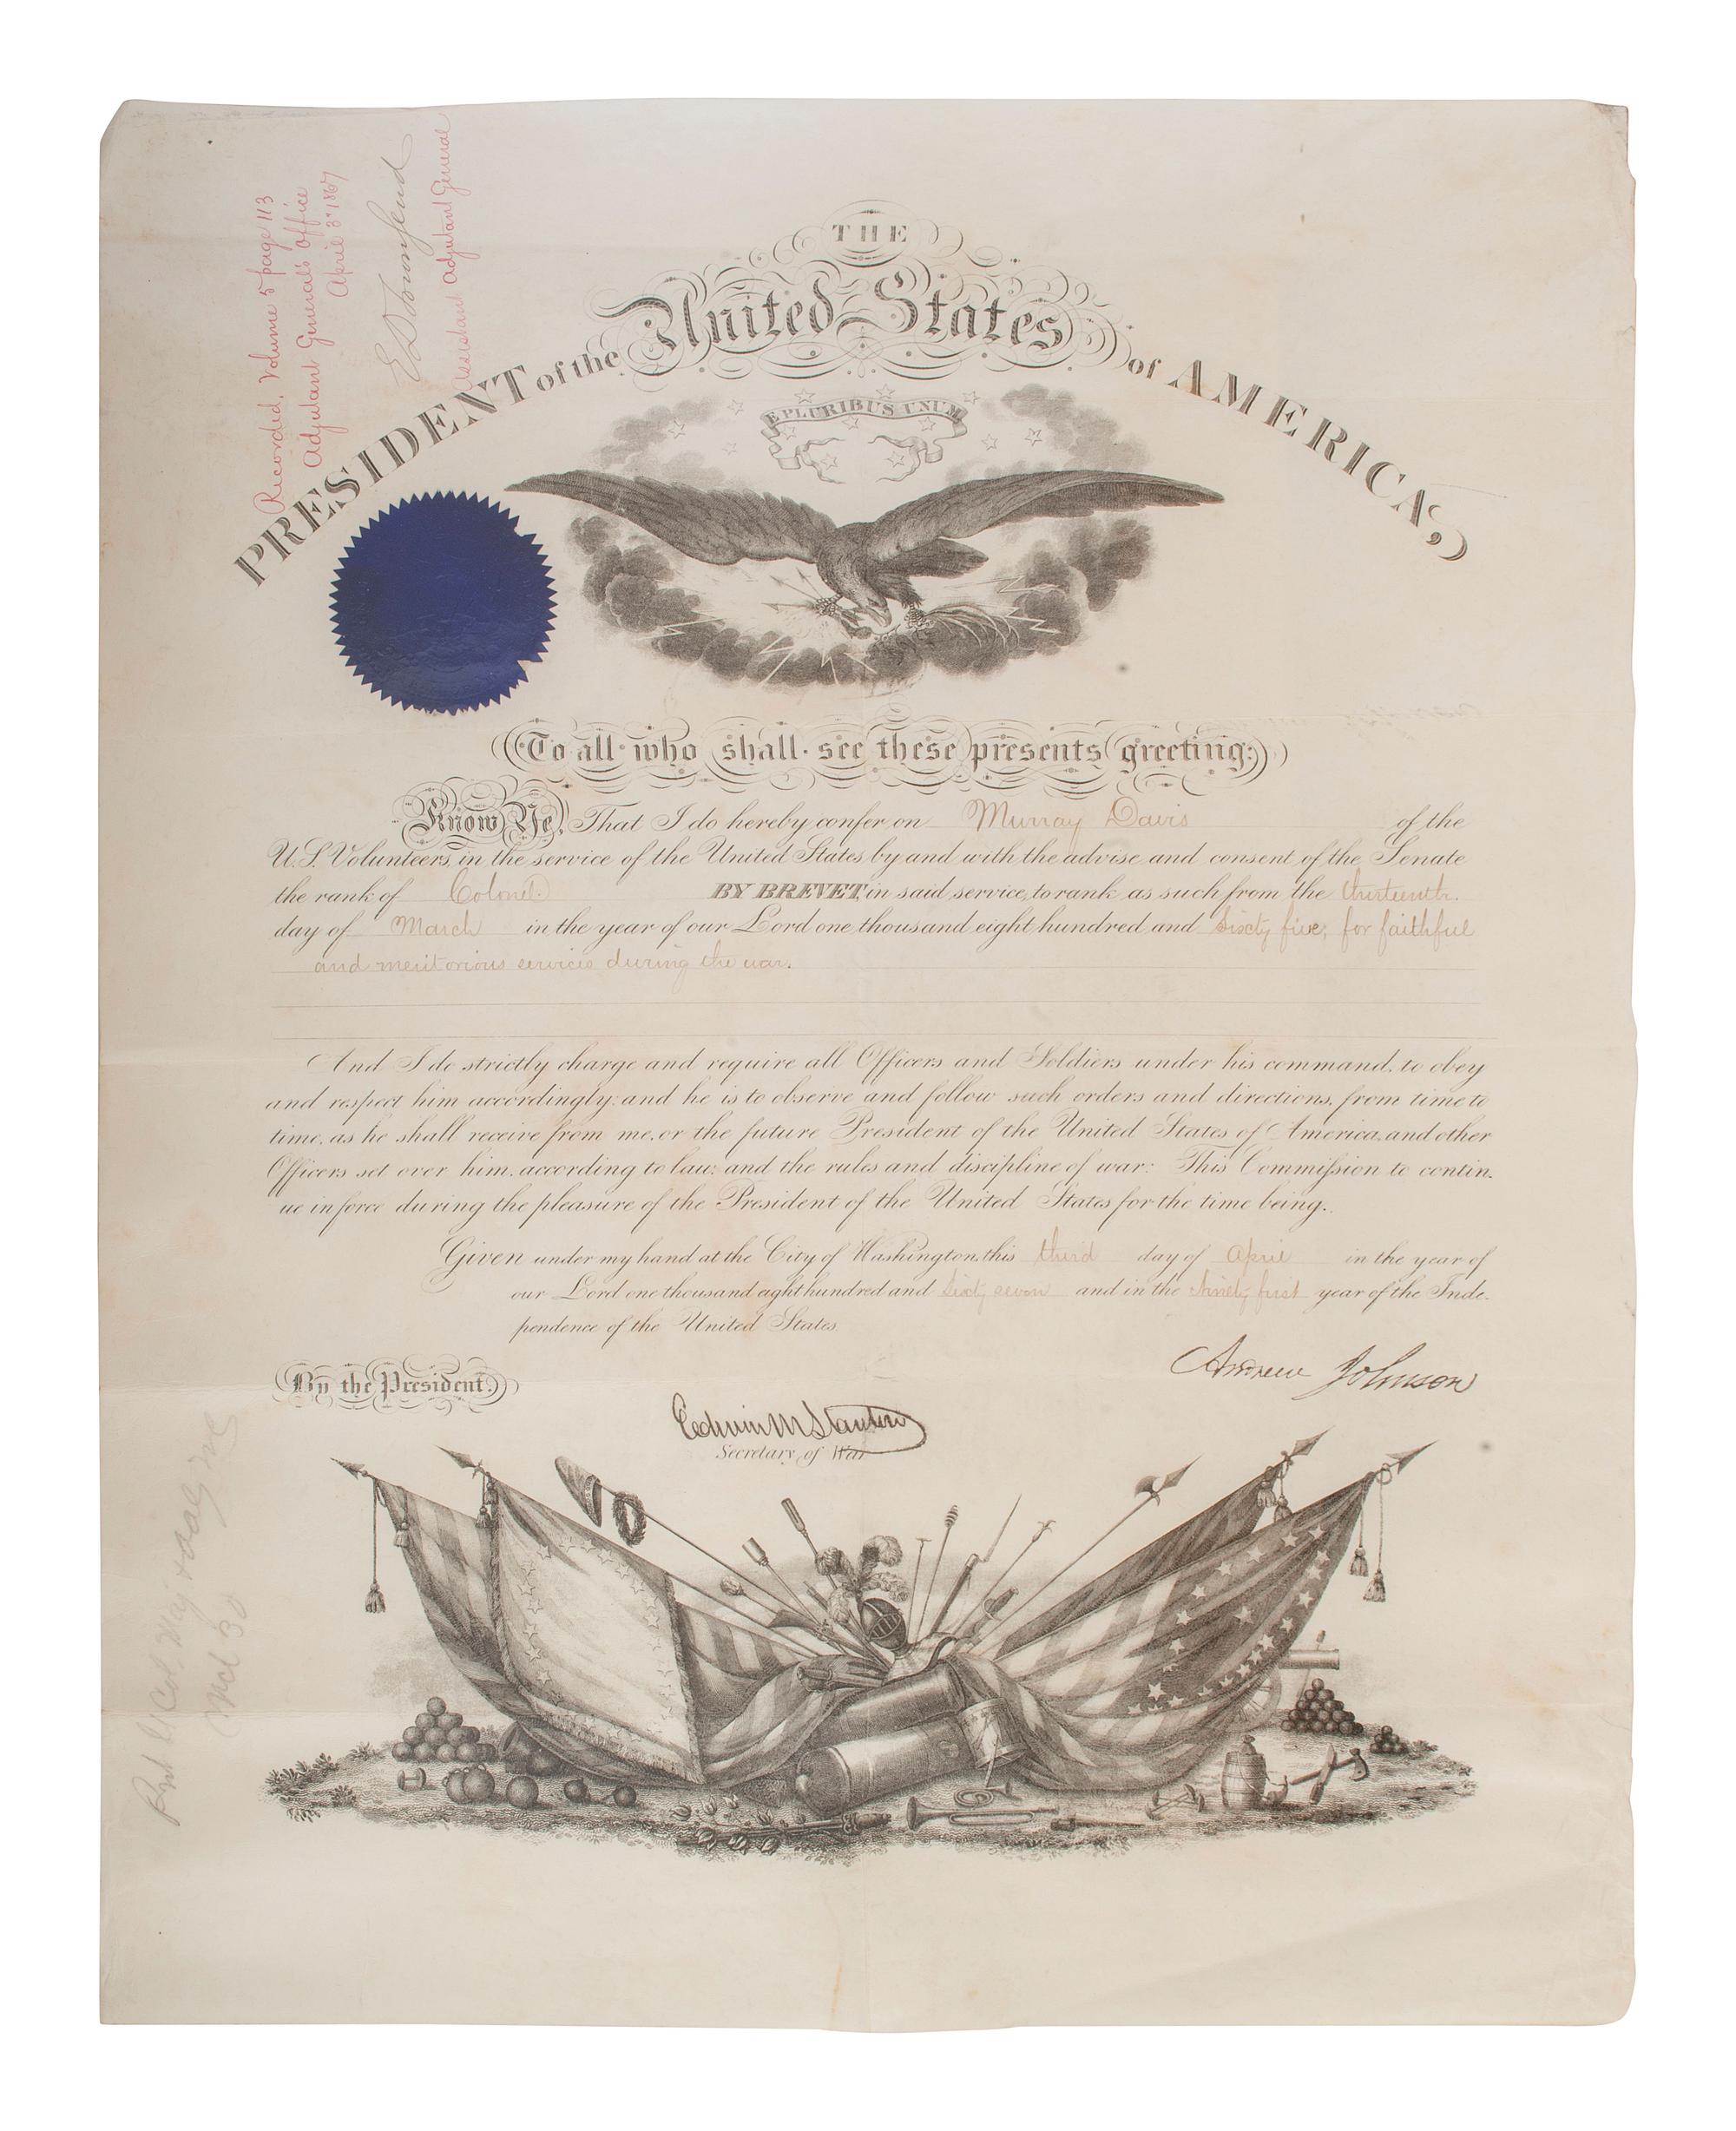 Recorded, Volume 5 page 113
Adjutant General's Office
April 3d 1867
E D Townsend
Assistant Adjutant General
THE
PRESIDENT of the United States of AMERICA,
E PLURIBUS UNUM
To all who shall see these presents greeting:
Know Ye, That I do hereby confer on Murray Davis of the
U.S. Volunteers, in the service of the United States by and with the advise and consent of the Senate
the rank of Colonel BY BREVET, in said service, to rank as such from the thirteenth
day of March in the year of our Lord one thousand eight hundred and sixty five, for faithful
and meritorious services during the war.
And I do strictly charge and require all Officers and Soldiers under his command, to obey
and respect him accordingly: and he is to observe and follow such orders and directions, from time to
time, as he shall receive from me, or the future President of the United States of America, and other
Officers set over him, according to law; and the rules and discipline of war: This Commission to contin-
ue in force during the pleasure of the President of the United States for the time being.
Given under my hand at the City of Washington, this third day of April in the year of
our Lord one thousand eight hundred and sixty seven and in the Ninety first year of the Inde-
pendence of the United States.
By the President.
Andrew Johnson
Edwin M Stanton
Secretary of War